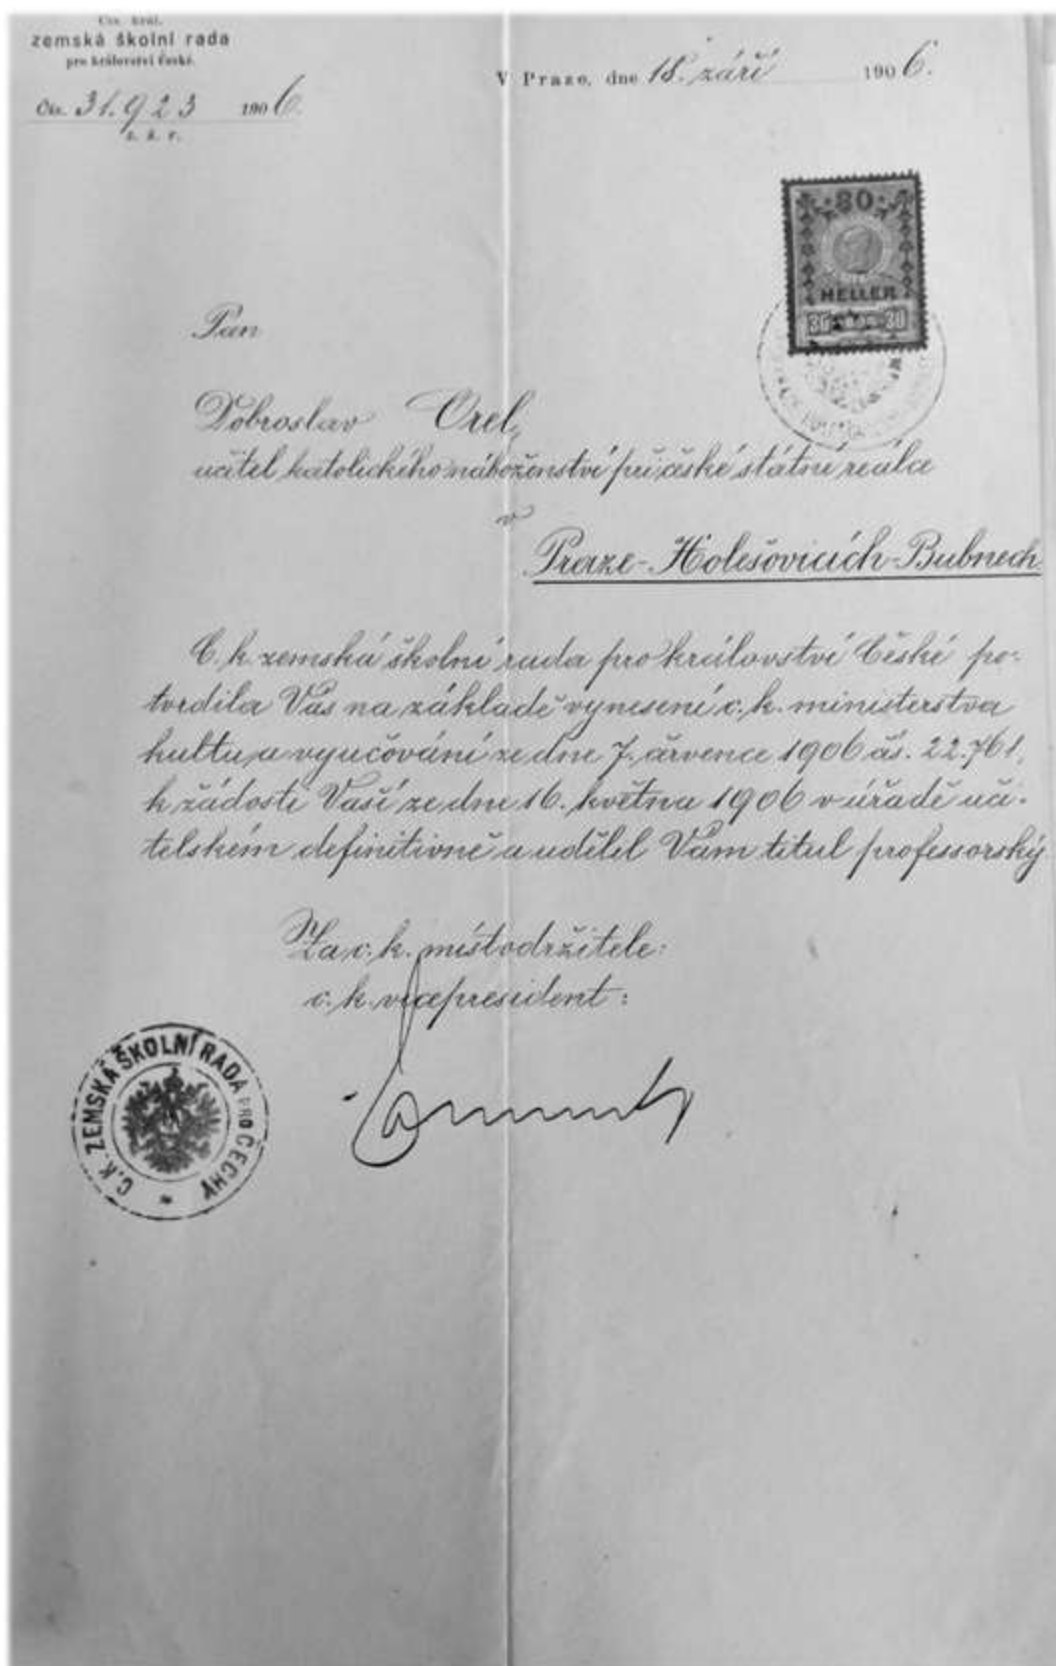 Cís. král.
zemská školní rada
pro království České.
V Praze, dne 18. září 1906.
Čís. 31.923 1906.
z. š. r.
80
HELLER
30 30
Pan
Dobroslav Orel,
učitel katolického náboženství při české státní reálce
v
Praze-Holešovicích-Bubnech
C. k. zemská školní rada pro království České po-
tvrdila Vás na základě vynesení c. k. ministerstva
kultu a vyučování ze dne 7. července 1906 čís. 22.761,
k žádosti Vaší ze dne 16. května 1906 v úřadě uči-
telském definitivně a udělil Vám titul professorský
Za c. k. místodržitele:
c. k. vicepresident:
C.K. ZEMSKÁ ŠKOLNÍ RADA PRO ČECHY